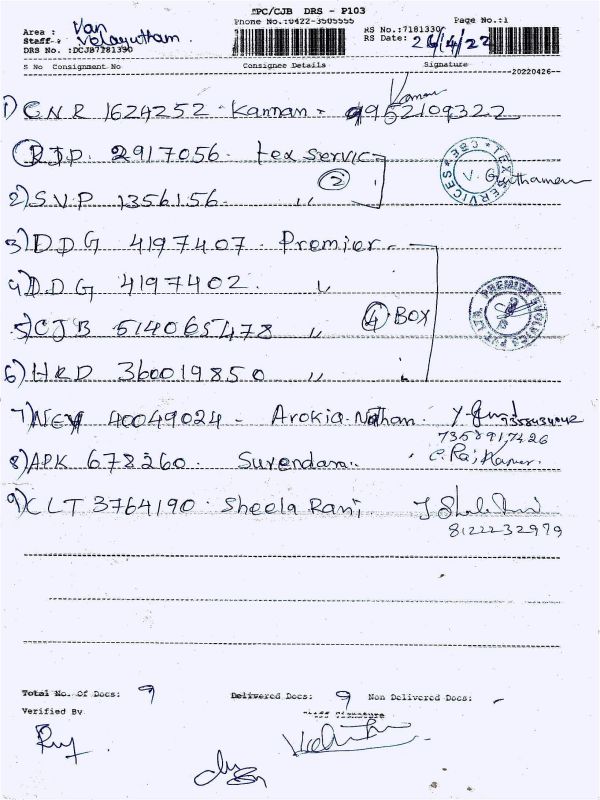 TPC/CJB DRS - P103
Phone No.:0422-3505555
Page No.:1
Area : Van
Staff : Velayutham
DRS No. :DCJB7181330
RS No.:7181330
RS Date: 26/4/22
S No Consignment No Consignee Details Signature
20220426
1) CNR 1624252 - Kannan - 9952109322
Kannan
RJP. 2917056 - tex servic
2
2) S.V.P 1356156 - "
TEX SERVICES * CBE *
V. Gowthaman
3) DDG 4197407 - Premier -
4) D.D.G 4197402 . "
5) CJB 514065478 "
4 BOX
6) HRD 360019850 "
PREMIER EVOLVICS PVT LTD.
7) NEY 40049024 - Arokia Nathan
7358917426
8) APK 678260 . Surendara..
C. Raj Kumar.
9) CLT 3764190 . Sheela Rani
8122232979
Total No. Of Docs: 9 Delivered Docs: 9 Non Delivered Docs: -
Verified By
Staff Signature